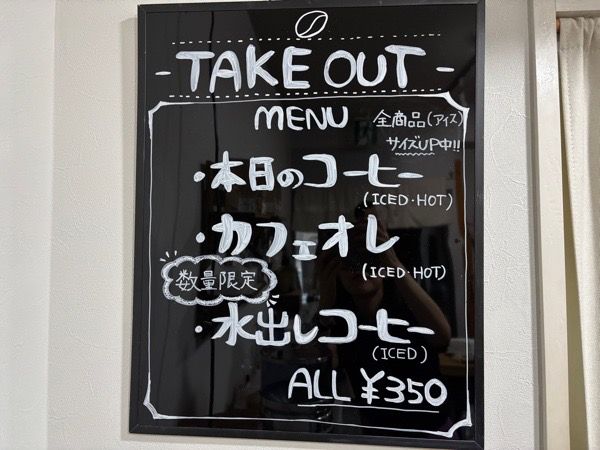 - TAKE OUT -
MENU
全商品(アイス)
サイズUP中!!
・本日のコーヒー
(ICED・HOT)
・カフェオレ
(ICED・HOT)
数量限定
・水出しコーヒー
(ICED)
ALL ¥350